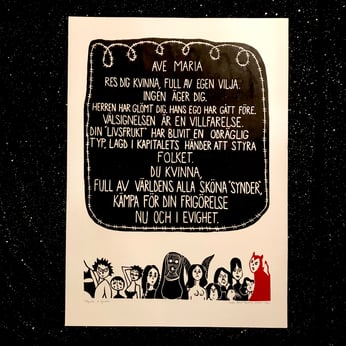 AVE MARIA
RES DIG KVINNA, FULL AV EGEN VILJA.
INGEN ÄGER DIG.
HERREN HAR GLÖMT DIG. HANS EGO HAR GÅTT FÖRE.
VÄLSIGNELSEN ÄR EN VILLFARELSE.
DIN "LIVSFRUKT" HAR BLIVIT EN ODRÄGLIG
TYP, LAGD I KAPITALETS HÄNDER ATT STYRA
FOLKET.
DU KVINNA,
FULL AV VÄRLDENS ALLA SKÖNA "SYNDER",
KÄMPA FÖR DIN FRIGÖRELSE
NU OCH I EVIGHET.